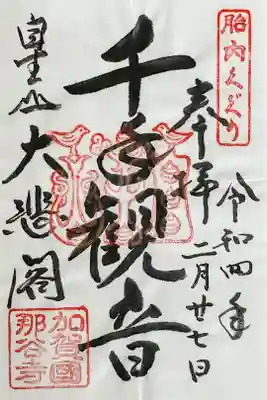 胎内くぐり
奉拝
令和四年
二月廿七日
千手観音
自生山
大悲閣
加賀國
那谷寺